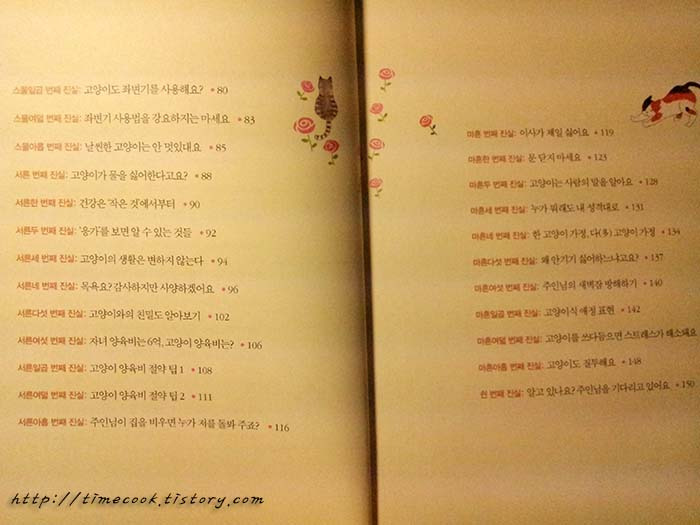 스물일곱 번째 진실: 고양이도 좌변기를 사용해요? • 80
스물여덟 번째 진실: 좌변기 사용법을 강요하지는 마세요 • 83
스물아홉 번째 진실: 날씬한 고양이는 안 멋있대요 • 85
서른 번째 진실: 고양이가 물을 싫어한다고요? • 88
서른한 번째 진실: 건강은 '작은 것'에서부터 • 90
서른두 번째 진실: '응가'를 보면 알 수 있는 것들 • 92
서른세 번째 진실: 고양이의 생활은 변하지 않는다 • 94
서른네 번째 진실: 목욕요? 감사하지만 사양하겠어요 • 96
서른다섯 번째 진실: 고양이와의 친밀도 알아보기 • 102
서른여섯 번째 진실: 자녀 양육비는 6억, 고양이 양육비는? • 106
서른일곱 번째 진실: 고양이 양육비 절약 팁 1 • 108
서른여덟 번째 진실: 고양이 양육비 절약 팁 2 • 111
서른아홉 번째 진실: 주인님이 집을 비우면 누가 저를 돌봐 주죠? • 116
마흔 번째 진실: 이사가 제일 싫어요 • 119
마흔한 번째 진실: 문 닫지 마세요 • 123
마흔두 번째 진실: 고양이는 사람의 말을 알아요 • 128
마흔세 번째 진실: 누가 뭐래도 내 성격대로 • 131
마흔네 번째 진실: 한 고양이 가정, 다(多) 고양이 가정 • 134
마흔다섯 번째 진실: 왜 안기기 싫어하느냐고요? • 137
마흔여섯 번째 진실: 주인님의 새벽잠 방해하기 • 140
마흔일곱 번째 진실: 고양이식 애정 표현 • 142
마흔여덟 번째 진실: 고양이를 쓰다듬으면 스트레스가 해소돼요
마흔아홉 번째 진실: 고양이도 질투해요 • 148
쉰 번째 진실: 알고 있나요? 주인님을 기다리고 있어요 • 150
http://timecook.tistory.com